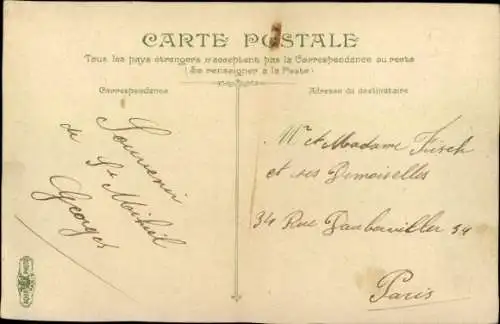 CARTE POSTALE
Tous les pays étrangers n'acceptent pas la Correspondance au recto
(Se renseigner à la Poste)
Correspondance
Adresse du destinataire
Souvenir
de St Mihiel
Georges
Mr et Madame Frisch
et ses Demoiselles
34 Rue Daubervillier 34
Paris